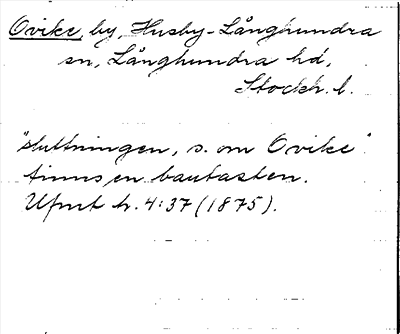 Ovike, by, Husby-Långhundra
sn, Långhundra hd,
Stockh. l.
"sluttningen, s. om Ovike"
finns en bautasten.
Ufmt h. 4:37 (1875).